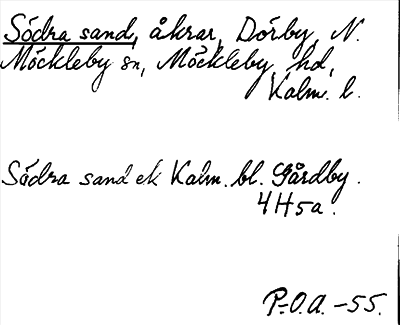 Södra sand, åkrar, Dörby, N.
Möckleby sn, Möckleby hd,
Kalm. l.
Södra sand ek Kalm. bl. Gårdby.
4H5a.
P.-O.A. -55.